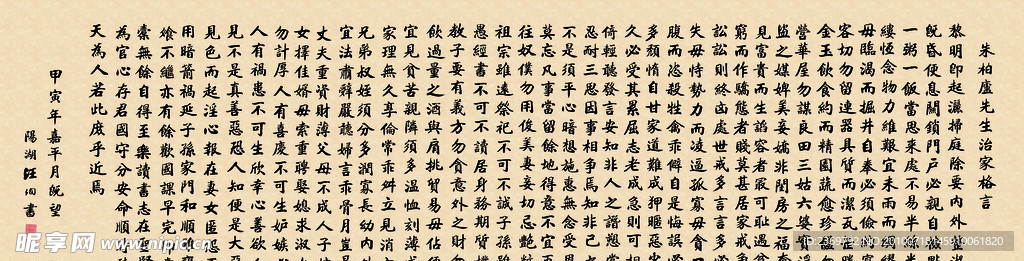 朱柏盧先生治家格言
黎明即起灑掃庭除要内外整
既昏便息關鎖門戶必親自點
一粥一飯當思來處不易半絲
縷恒念物力維艱宜未雨而綢
毋臨渴而掘井自奉必須儉
客切勿留連器具質而潔瓦
金玉飲食約而精園蔬愈珍
營華屋勿謀良田三姑六婆實
盜之媒婢美妾嬌非閨房之福
見富貴而生諂容者最可恥遇
窮而作驕態者賤莫甚居家戒
訟訟則終凶處世戒多言言多
失毋恃勢力而凌逼孤寡毋貪
腹而恣殺牲禽乖僻自是悔誤
多頹惰自甘家道難成狎暱惡
久必受其累屈志老成急則可
倚輕聽發言安知非人之譖愬
忍耐三思因事相爭焉知非己
不是須平心暗想施惠無念受
莫忘凡事當留餘地得意不宜
往 勿用俊美妻妾切忌艷
祖宗雖遠祭祀不可不誠子孫雖
愚經書不可不讀居身務期質
教子要有義方勿貪意外之財
飲過量之酒與肩挑貿易毋佔
宜見貧苦親鄰須多溫恤刻薄
家理無久享倫常乖舛立見消
兄弟叔姪須分多潤寡長幼内
宜法肅辭嚴聽婦言乖骨月豈
丈夫重資財薄父母不成人子
女擇佳婿毋索重聘娶媳求淑
勿計厚 人有喜慶不可生妒嫉
人有禍患不可生欣幸心善欲
見不是真善惡恐人知便是大
見色而起淫心報在妻女匿怨
用暗箭禍延子孫家門和順
飧不繼亦有餘歡國課早完
橐無餘自得至樂讀書志在
為官心存君國守分安命順
天為人若此庶乎近焉
甲寅年嘉平月既望
陽湖汪洵書
昵享网 www.nipic.cn